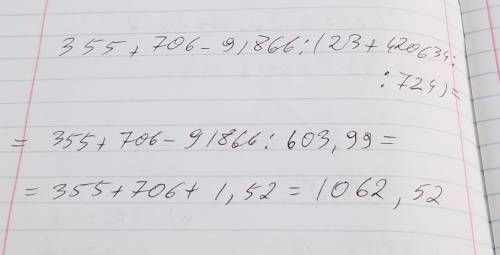 355+706-91866:(23+420634:
:724)=
= 355+706-91866:603,99=
= 355+706+1,52=1062,52